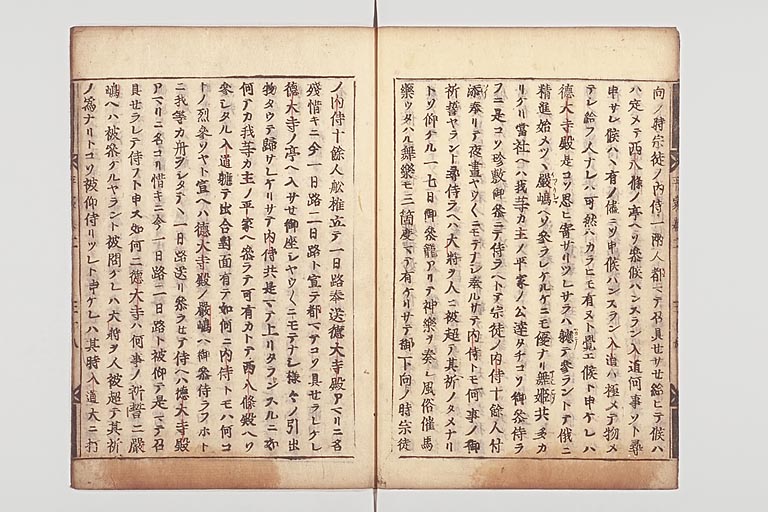 向ノ時宗徒ノ内侍一兩人都マテ召具セサセ給ヒテ候ハ
ハ定メテ西八條ノ亭ヘソ參候ハンスラン入道何事ソト尋
申サレ候ハハ有ノ儘ニソ申候ハンスラン入道ハ極メテ物メ
テシ給フ人ナレハ可然ハカラヒモ有ヌト覺エ候ト申ケレハ
德大寺殿是コソ思ヒ寄サリツレサラハ軈テ參ラントテ俄ニ
精進始メツヽ嚴嶋ヘソ參ラレケルケニモ優ナリ舞姫共多カ
リケリ當社ヘハ我等カ主ノ平家ノ公達タチコソ御參侍ラ
フニ是コソ珍敷御參ニテ侍ラヘトテ宗徒ノ内侍十餘人付
添奉リテ夜晝ヤウくニモテナシ奉ルサテ内侍トモ何事ノ御
祈誓ヤラント尋侍ラヘハ大將ヲ人ニ被超テ其祈ノタメナリ
トソ仰ケル一七日御參籠アリテ神樂ヲ奏シ風俗催馬
樂ウタハル舞樂モ三箇度マテ有ケリサテ御下向ノ時宗徒
ノ内侍十餘人舩推立テ一日路奉送德大寺殿アマリニ名
殘惜キニ今一日路二日路ト宣テ都マテコソ具セラレケレ
德大寺ノ亭ヘ入サセ御座シヤウくニモテナシ樣々ノ引出
物タウテ歸サレケリサテ内侍共是マテ上リタランスルニ亦
何アカ我等カ主ノ平家ヘ參ラテ可有カトテ西八條殿ヘソ
參レタル入道軈テ出合對面有テ如何ニ内侍トモハ何コ
トノ烈參ソヤト宣ヘハ德大寺殿ノ嚴嶋ヘ御參侍ラフホト
ニ我等カ舟ヲシタテヽ一日路送リ參ラセテ侍ヘハ德大寺殿
アマリニ名コリ惜キニ今一日路二日路ト被仰テ是マテ召
具セラレテ侍フト申ス如何ニ德大寺ハ何事ノ祈誓ニ嚴
嶋ヘハ被參ケルヤラント被問ケレハ大將ヲ人被超テ其祈
ノ爲ナリトコソ被仰侍リツレト申ケレハ其時入道大ニ打